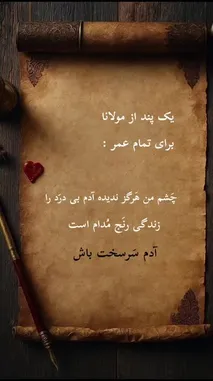 یک پند از مولانا
برای تمام عمر :
چَشم من هَرگز ندیده آدم بی دَرد را
زندگی رنَج مُدام است
آدم سَرسَخت باش